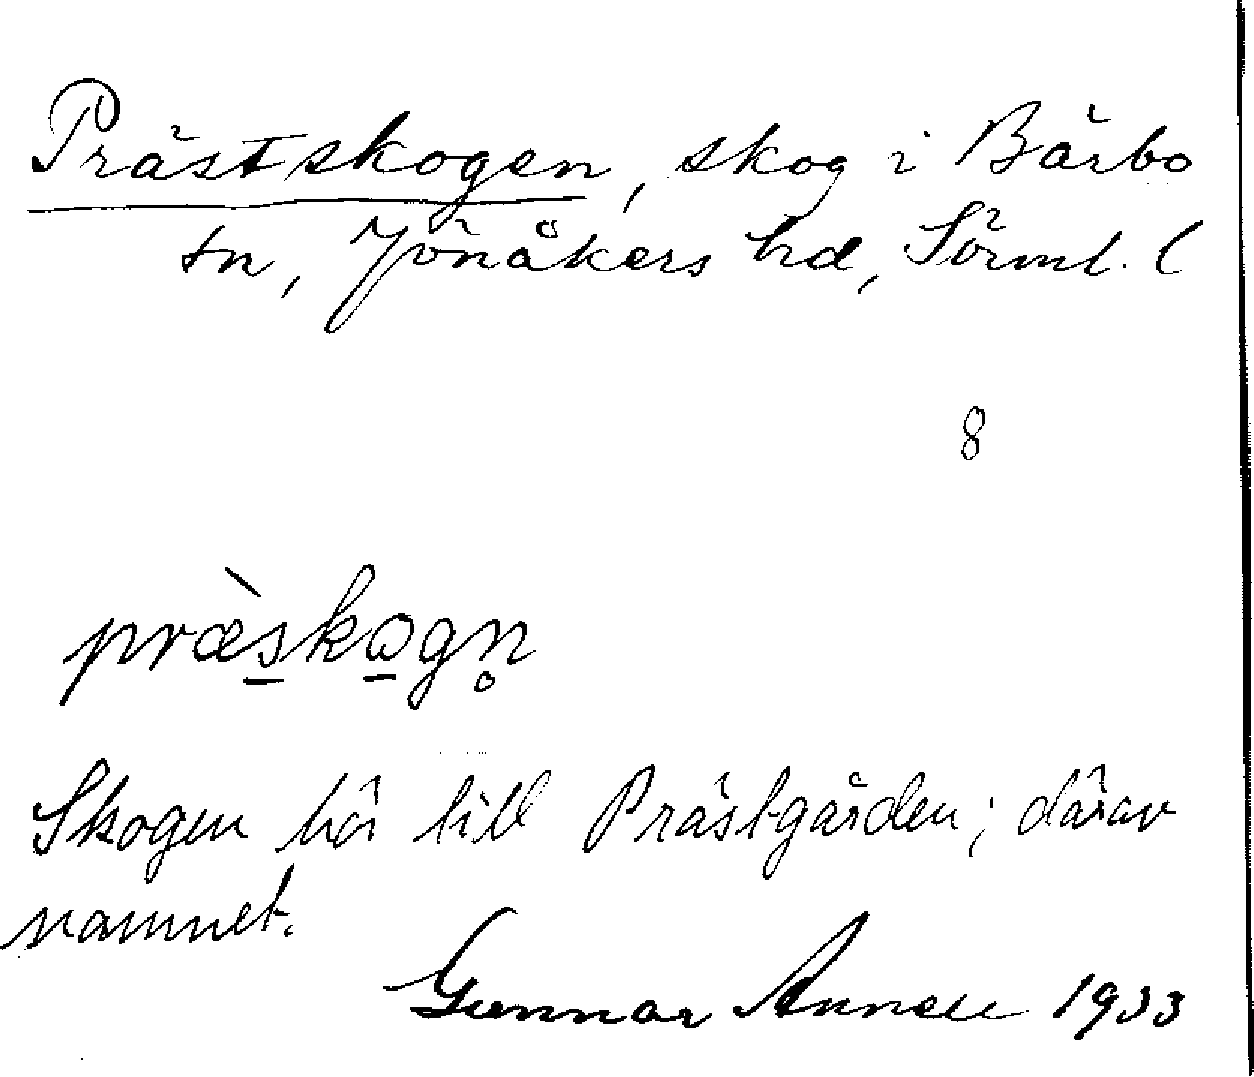 Prästskogen, skog i Bärbo
sn, Jönåkers hd, Sörml. l
8
præ̀s̲ko̲gn̥
Skogen hör till Prästgården; därav
namnet.
Gunnar 1933